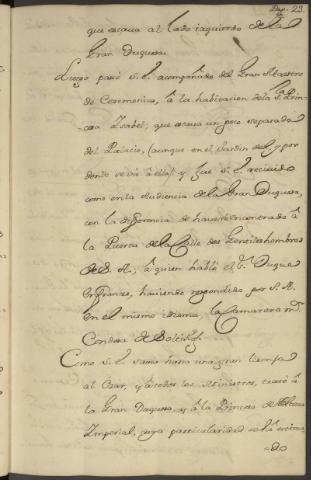 Pag. 23.
que estava al lado izquierdo de la
Gran Duquesa.
Luego passò S. E. acompañado del Gran Maestro
de Ceremonias, â la habitacion de la S.ra Prin-
cesa Isabel, que estava un poco separada
del Palacio, (aunque en el Jardin de el, y por
donde se và â ella) y fue S. E. recivido
como en la Audiencia de la Gran Duquesa,
con la diferencia de haverse encontrado â
la Puerta de la Calle dos Gentilshombres
de S. A., â quien hablò el S.r Duque
en Francès, haviendo respondido por S. A.
en el mismo idioma, la Camarera m.r
Condesa de
Como S. E. havia hasta una gran
al Czar, y â todos los Ministros, tratò â
la Gran Duquesa, y â la Princesa de
Imperial, cuya particularidad